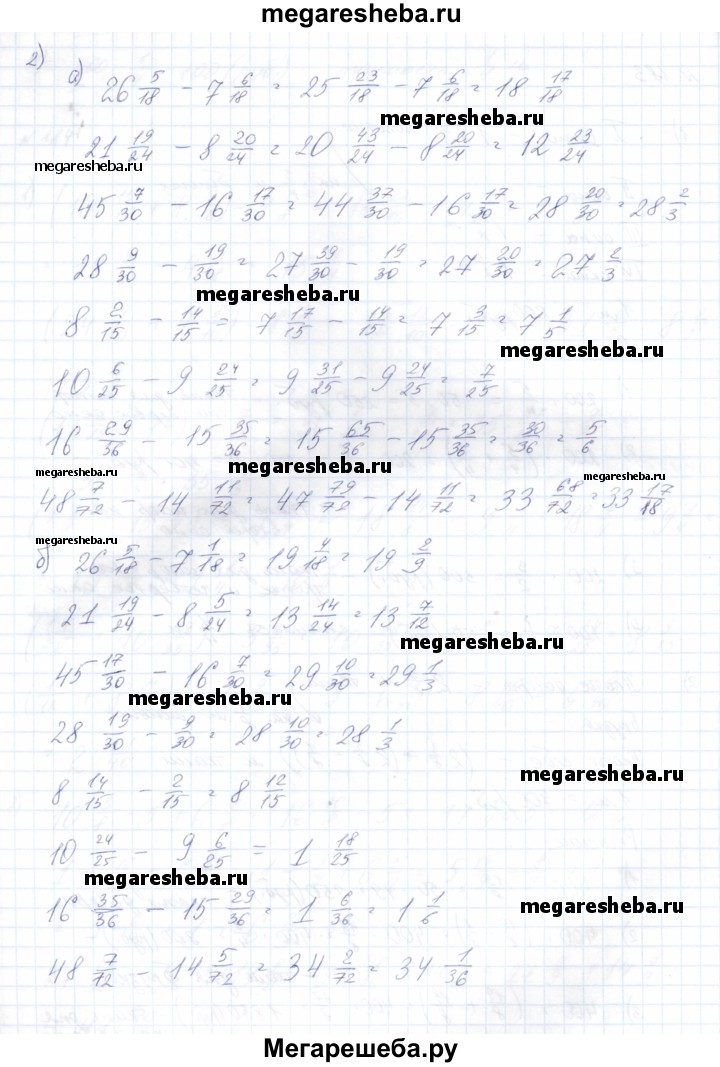 megaresheba.ru
2)
а) 26 5/18 - 7 6/18 = 25 23/18 - 7 6/18 = 18 17/18
megaresheba.ru
21 19/24 - 8 20/24 = 20 43/24 - 8 20/24 = 12 23/24
megaresheba.ru
45 7/30 - 16 17/30 = 44 37/30 - 16 17/30 = 28 20/30 = 28 2/3
28 9/30 - 19/30 = 27 39/30 - 19/30 = 27 20/30 = 27 2/3
megaresheba.ru
8 2/15 - 14/15 = 7 17/15 - 14/15 = 7 3/15 = 7 1/5
megaresheba.ru
10 6/25 - 9 24/25 = 9 31/25 - 9 24/25 = 7/25
16 29/36 - 15 35/36 = 15 65/36 - 15 35/36 = 30/36 = 5/6
megaresheba.ru megaresheba.ru megaresheba.ru
48 7/72 - 14 11/72 = 47 79/72 - 14 11/72 = 33 68/72 = 33 17/18
megaresheba.ru
б) 26 5/18 - 7 1/18 = 19 4/18 = 19 2/9
21 19/24 - 8 5/24 = 13 14/24 = 13 7/12
megaresheba.ru
45 17/30 - 16 7/30 = 29 10/30 = 29 1/3
megaresheba.ru
28 19/30 - 9/30 = 28 10/30 = 28 1/3
megaresheba.ru
8 14/15 - 2/15 = 8 12/15
10 24/25 - 9 6/25 = 1 18/25
megaresheba.ru
16 35/36 - 15 29/36 = 1 6/36 = 1 1/6
megaresheba.ru
48 7/72 - 14 5/72 = 34 2/72 = 34 1/36
Мегарешеба.ру